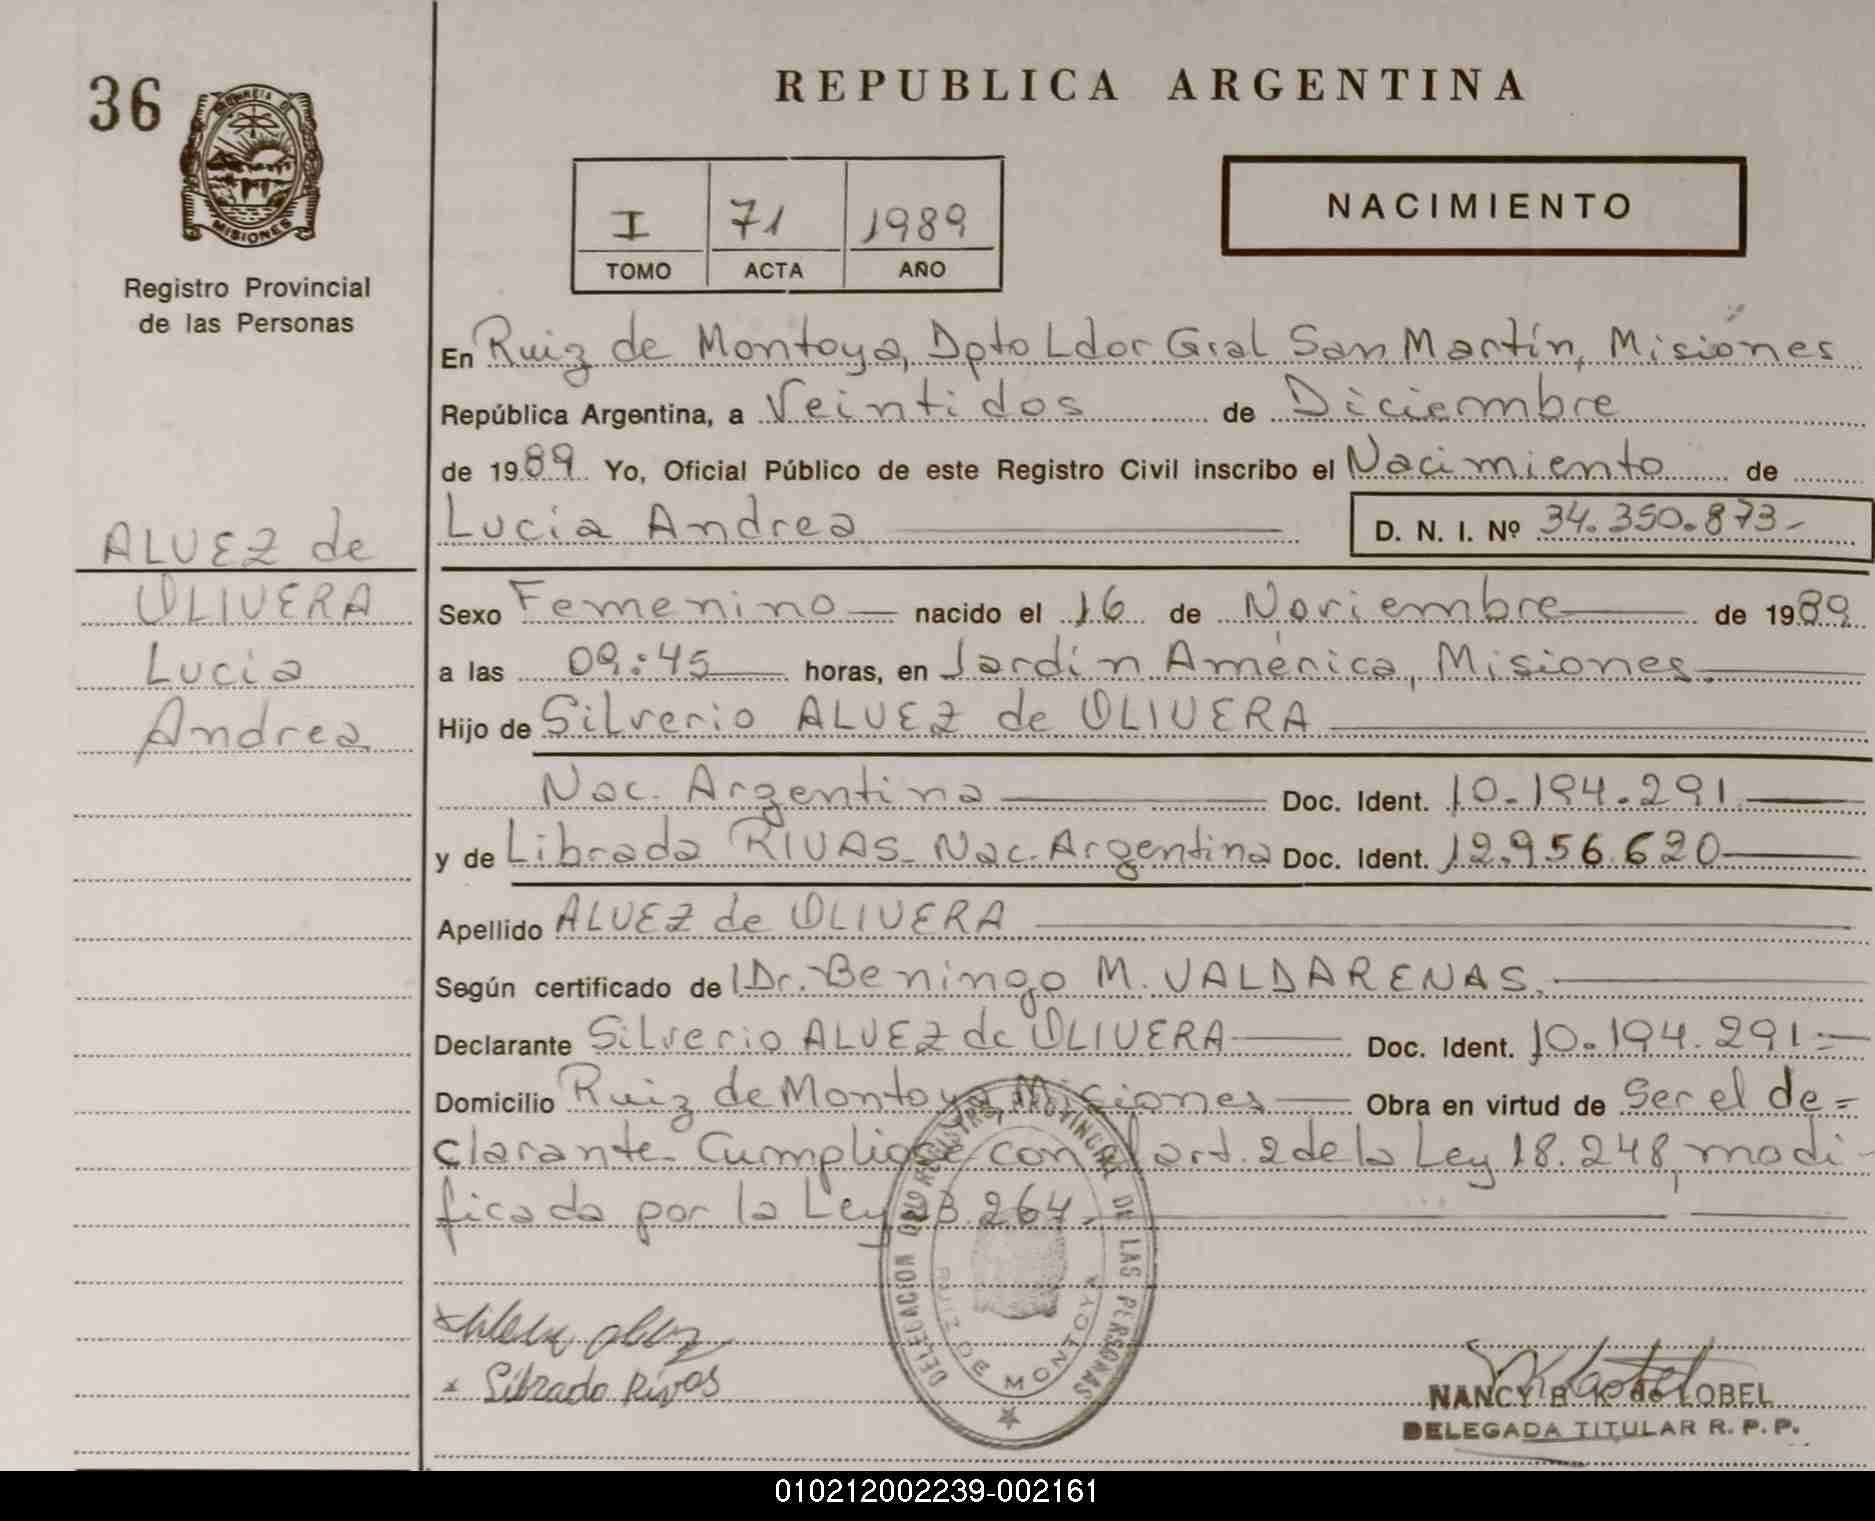 36
PROVINCIA DE
MISIONES
Registro Provincial
de las Personas
REPUBLICA ARGENTINA
I 71 1989
TOMO ACTA AÑO
NACIMIENTO
En Ruiz de Montoya, Dpto Ldor Gral San Martín, Misiones
República Argentina, a Veintidos de Diciembre
de 1989 Yo, Oficial Público de este Registro Civil inscribo el Nacimiento de
Lucia Andrea D. N. I. Nº 34.350.873-
ALVEZ de
OLIVERA
Lucia
Andrea
Sexo Femenino nacido el 16 de Noviembre de 1989
a las 09:45 horas, en Jardín América, Misiones.
Hijo de Silverio ALVEZ de OLIVERA
Nac. Argentina Doc. Ident. 10.194.291
y de Librada RIVAS- Nac. Argentina Doc. Ident. 12.956.620
Apellido ALVEZ de OLIVERA
Según certificado de Dr. Beningo M. VALDARENAS.
Declarante Silverio ALVEZ de OLIVERA Doc. Ident. 10.194.291.-
Domicilio Ruiz de Montoya, Misiones Obra en virtud de Ser el de=
clarante- Cumpliose con el art. 2 de la Ley 18.248, modi-
ficada por la Ley 23.264.
DELEGACION DEL REGISTRO PROVINCIAL DE LAS PERSONAS
RUIZ DE MONTOYA
x Librado Rivas
NANCY B. K. de LOBEL
DELEGADA TITULAR R. P. P.
010212002239-002161